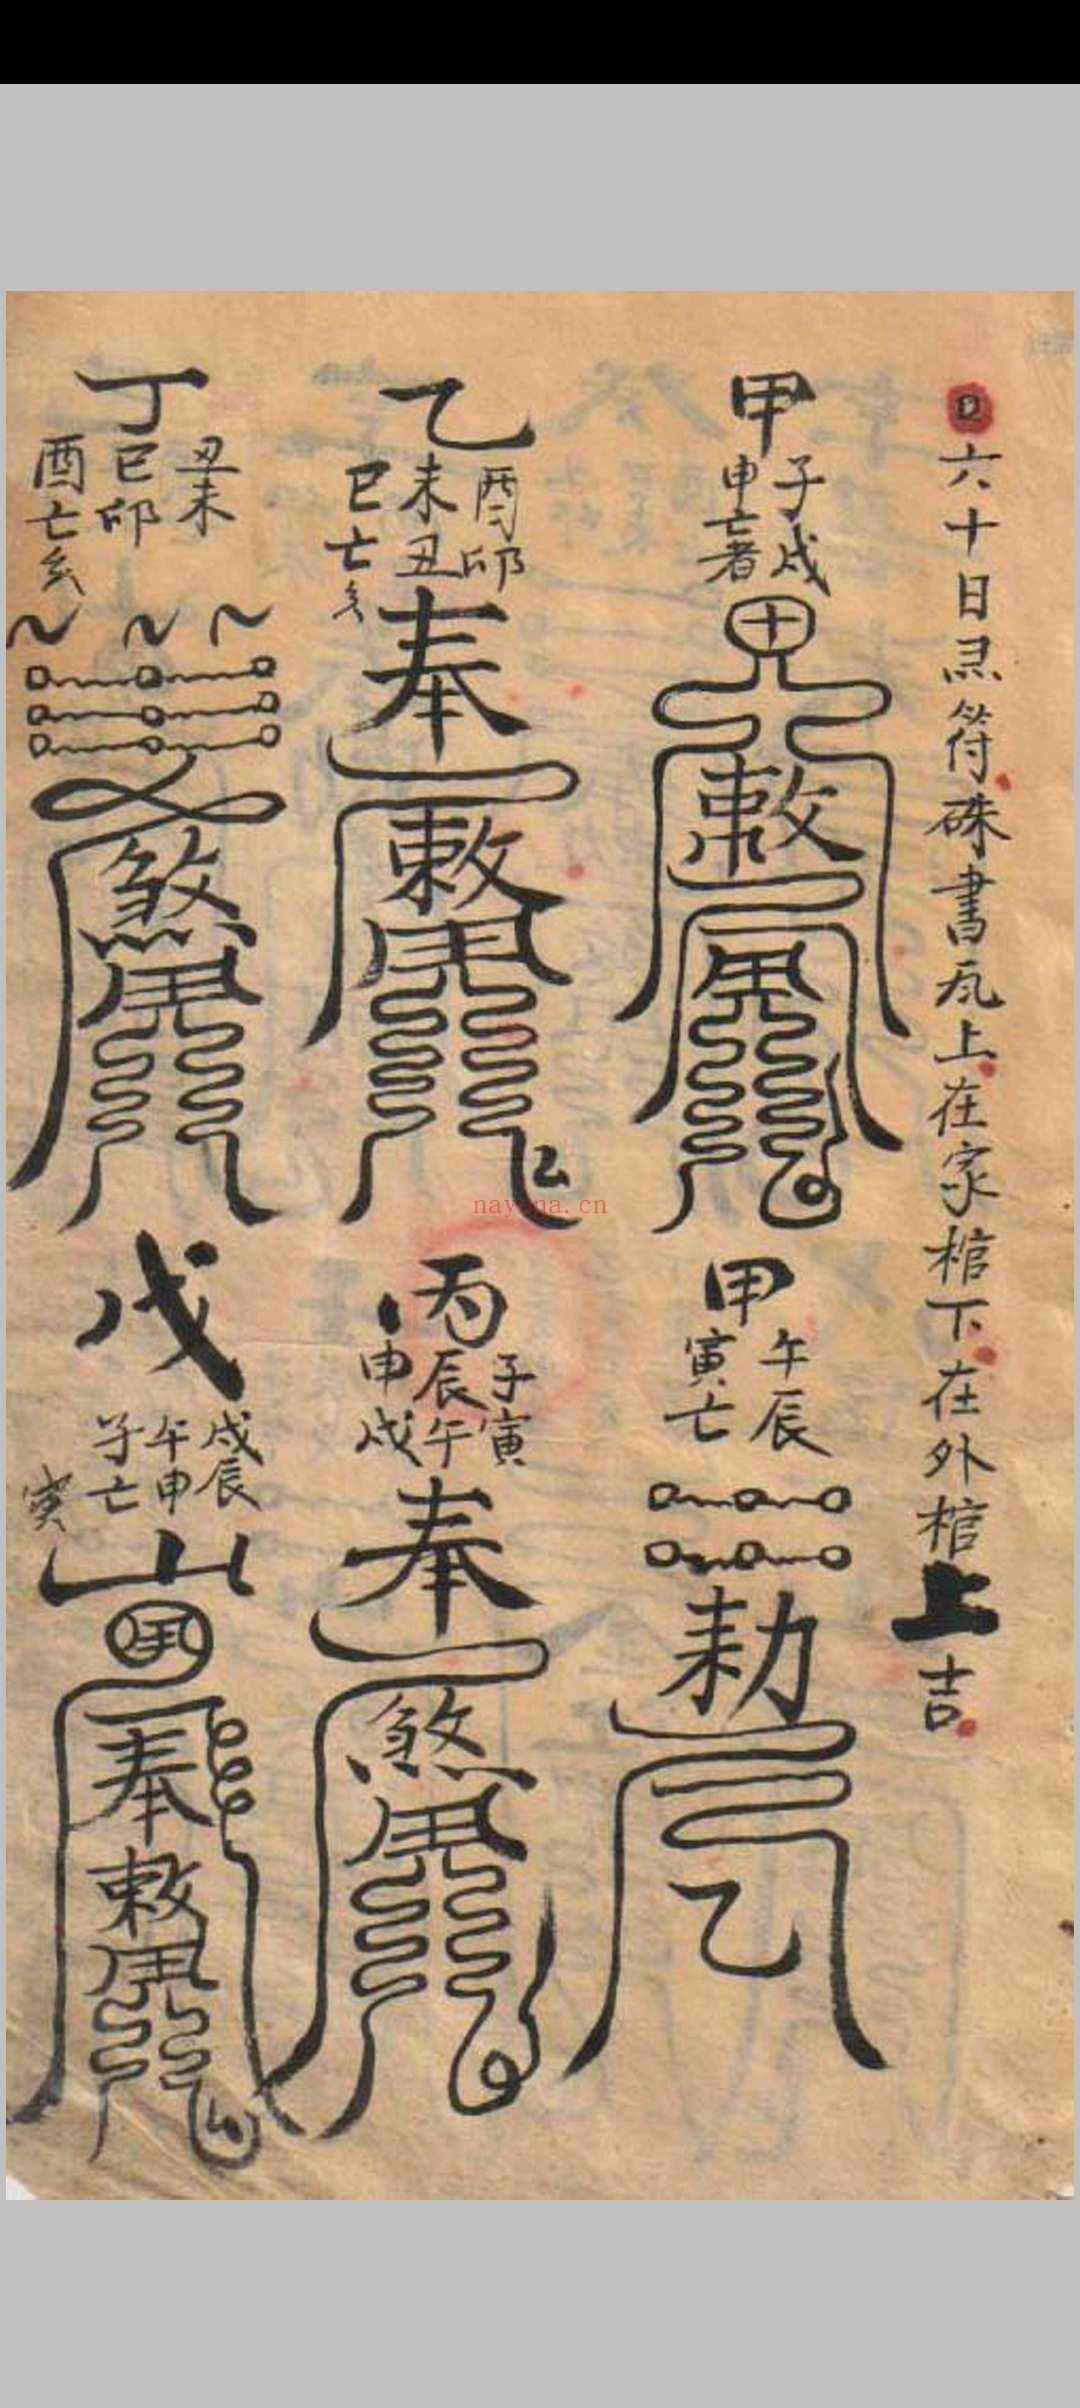 六十日𤋮符硃書瓦上在家棺下在外棺上吉
甲
子戌
申亡者
敕
甲
午辰
寅亡
勅
乙
酉卯
未丑
巳亡亥
奉
敕
丙
子寅
辰午
申戌
奉
煞
丁
丑未
巳卯
酉亡亥
煞
戊
戌辰
午申
子亡
寅
奉
敕
nayona.cn